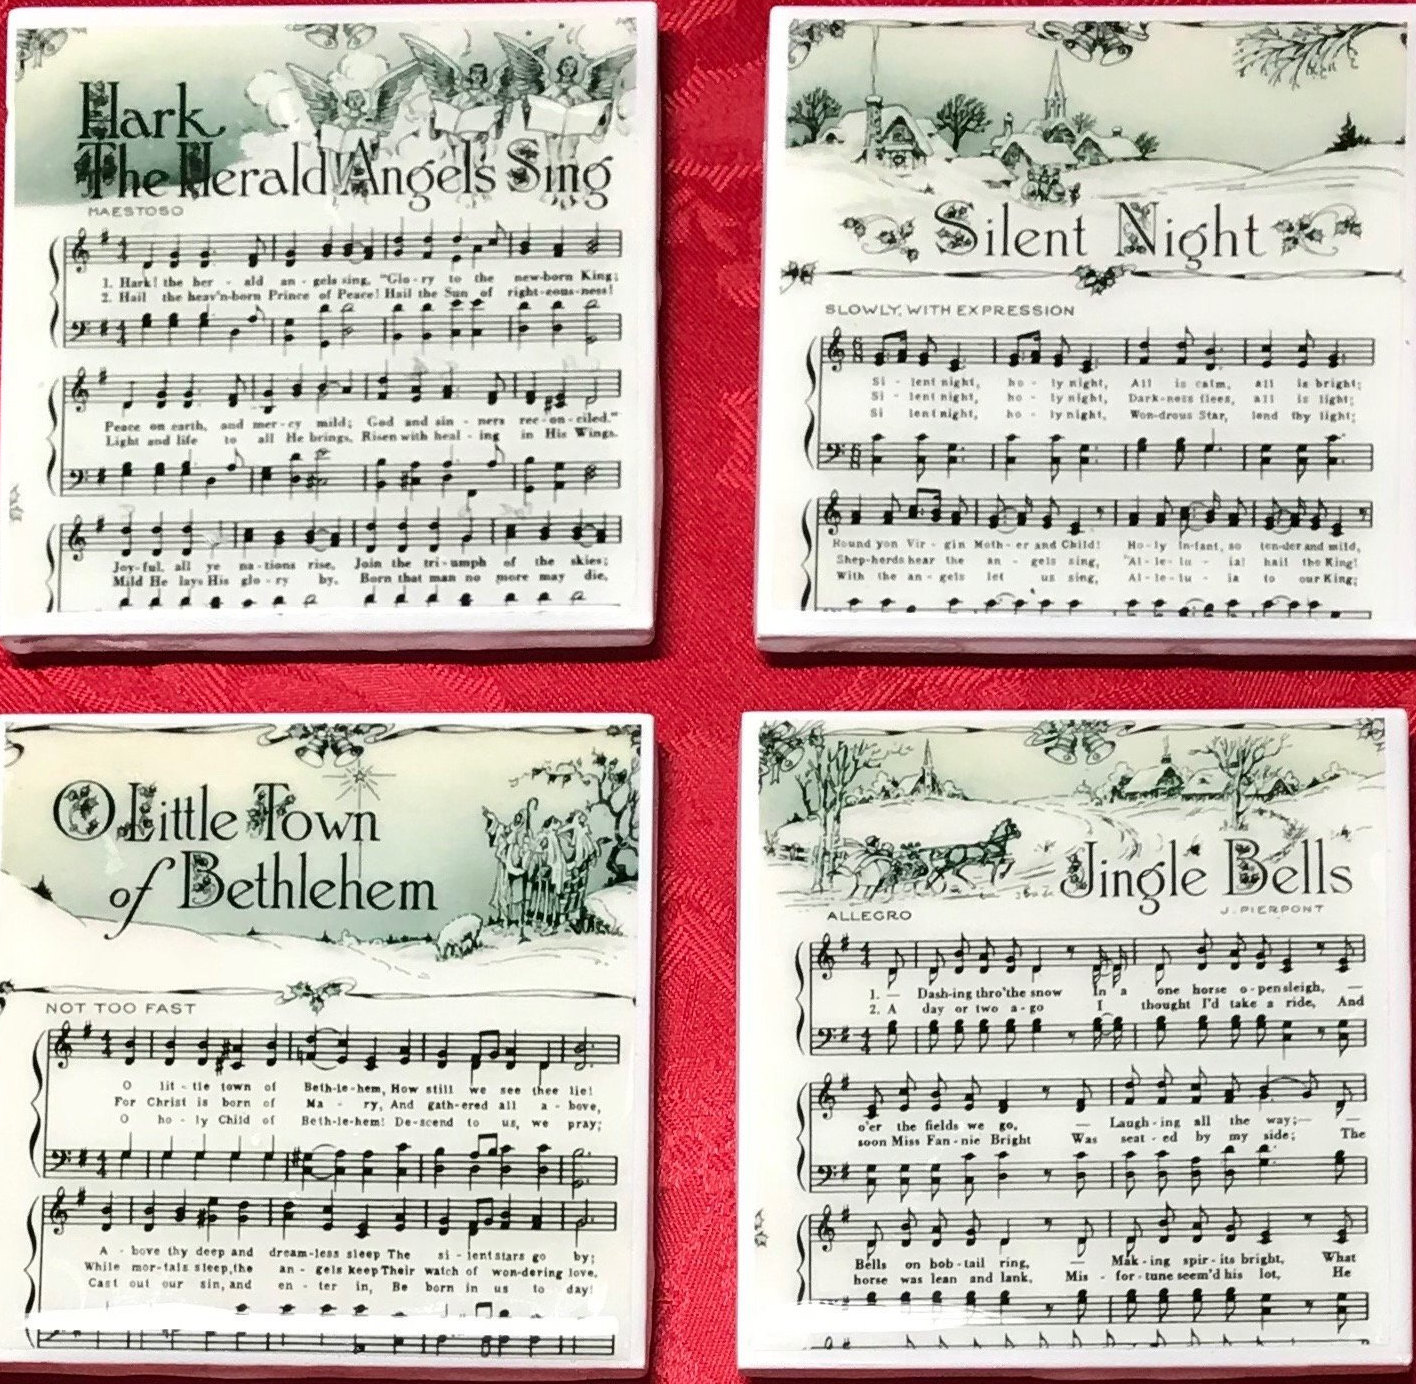 Hark
The Herald Angels Sing
MAESTOSO
1. Hark! the her - ald an - gels sing, "Glo - ry to the new-born King;
2. Hail the heav'n-born Prince of Peace! Hail the Sun of right-eous-ness!
Peace on earth, and mer - cy mild; God and sin - ners rec - on - ciled."
Light and life to all He brings, Risen with heal - ing in His Wings.
Joy-ful, all ye na - tions rise, Join the tri - umph of the skies;
Mild He lays His glo - ry by, Born that man no more may die,
Silent Night
SLOWLY, WITH EXPRESSION
Si - lent night, ho - ly night, All is calm, all is bright;
Si - lent night, ho - ly night, Dark-ness flees, all is light;
Si lent night, ho - ly night, Won-drous Star, lend thy light;
Round yon Vir - gin Moth - er and Child! Ho - ly In-fant, so ten-der and mild,
Shep-herds hear the an - gels sing, "Al - le - lu - ia! hail the King!
With the an - gels let us sing, Al - le - lu - ia to our King;
O Little Town
of Bethlehem
NOT TOO FAST
O lit - tle town of Beth-le-hem, How still we see thee lie!
For Christ is born of Ma - ry, And gath-ered all a - bove,
O ho - ly Child of Beth-le-hem! De-scend to us, we pray;
A - bove thy deep and dream-less sleep The si - lent stars go by;
While mor-tals sleep, the an - gels keep Their watch of won-dering love.
Cast out our sin, and en - ter in, Be born in us to day!
Jingle Bells
J. PIERPONT
ALLEGRO
1. — Dash-ing thro' the snow In a one horse o - pen sleigh, —
2. A day or two a - go I thought I'd take a ride, And
o'er the fields we go, — Laugh - ing all the way; —
soon Miss Fan - nie Bright Was seat - ed by my side; The
Bells on bob - tail ring, — Mak - ing spir - its bright, What
horse was lean and lank, Mis - for - tune seem'd his lot, He